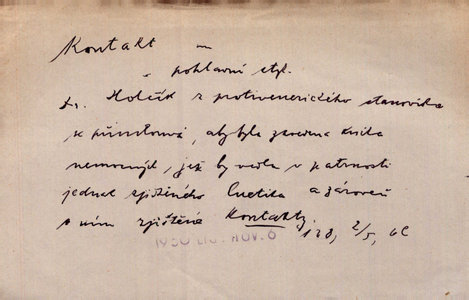 Kontakt —
„ pohlavní styk.
Dr. Holčík z protivenerického stanoviska
se přimlouvá, aby byla zavedena kniha
nemocných, jež by vedla v patrnosti
jednak zjištěného luetika a zároveň
s ním zjištěné Kontakty
128, 2/5,
1930 NOV. 6